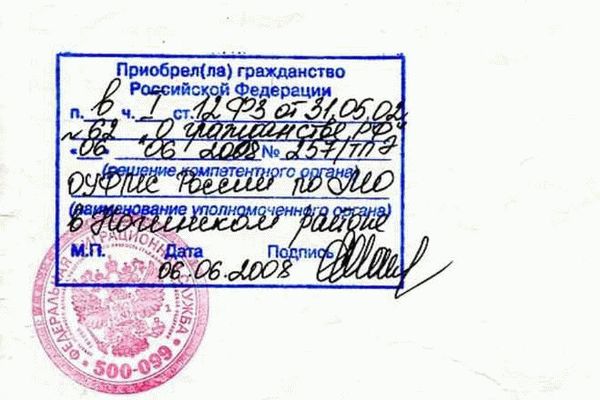 Приобрел(ла) гражданство
Российской Федерации
п. в ч. I ст. 12 ФЗ от 31.05.02.
№62 "О гражданстве РФ"
«06» 06 2008 № 257/
(решение компетентного органа)
ОУФМС России по МО
(наименование уполномоченного органа)
в Ногинском районе
М.П. Дата Подпись
06.06.2008
ФЕДЕРАЛЬНАЯ МИГРАЦИОННАЯ СЛУЖБА
500-099